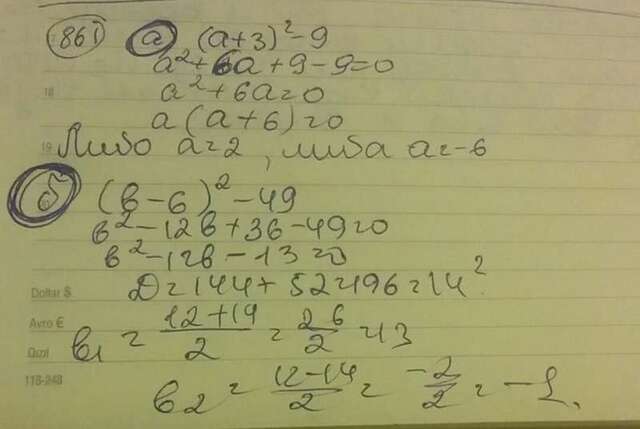 861 а) (a+3)²-9
a²+6a+9-9=0
a²+6a=0
18
a(a+6)=0
19 Либо a=2, либа a=-6
б) (b-6)²-49
b²-12b+36-49=0
b²-12b-13=0
Dollar $ D=144+52=196=14²
Avro €
b₁ = (12+14)/2 = 26/2 = 13
Qızıl
118-248
b₂ = (12-14)/2 = -2/2 = -1.